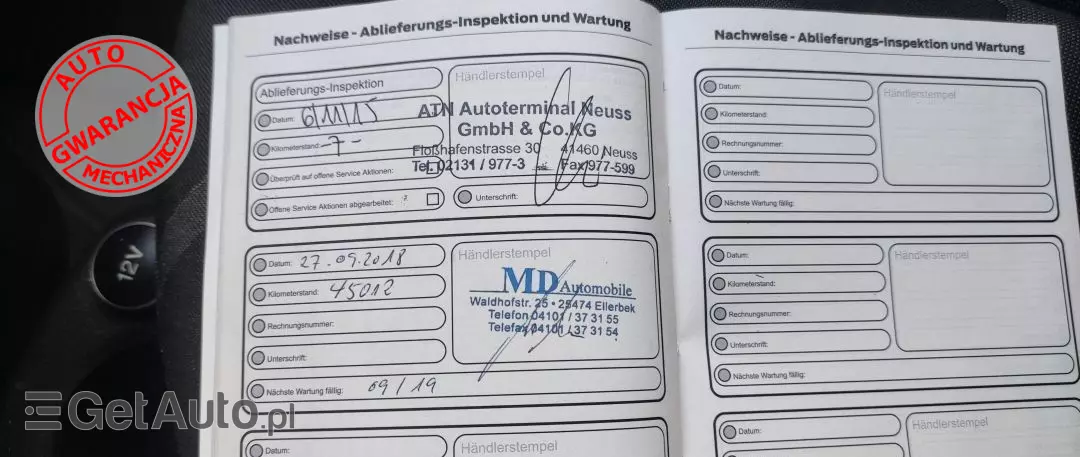 AUTO
GWARANCJA
MECHANICZNA
12V
GetAuto.pl
Nachweise - Ablieferungs-Inspektion und Wartung
Ablieferungs-Inspektion
Datum: 6/11/15
Kilometerstand: -7-
Überprüft auf offene Service Aktionen:
Offene Service Aktionen abgearbeitet:
Händlerstempel
ATN Autoterminal Neuss
GmbH & Co.KG
Floßhafenstrasse 30 41460 Neuss
Tel. 02131 / 977-3 Fax 977-599
Unterschrift:
Datum: 27.09.2018
Kilometerstand: 45012
Rechnungsnummer:
Unterschrift:
Nächste Wartung fällig: 09/19
Händlerstempel
MD Automobile
Waldhofstr. 25 • 25474 Ellerbek
Telefon 04101 / 37 31 55
Telefax 04101 / 37 31 54
Datum:
Händlerstempel
Nachweise - Ablieferungs-Inspektion und Wartung
Datum:
Kilometerstand:
Rechnungsnummer:
Unterschrift:
Nächste Wartung fällig:
Händlerstempel
Datum:
Kilometerstand:
Rechnungsnummer:
Unterschrift:
Nächste Wartung fällig:
Händlerstempel
Datum:
Händlerstempel